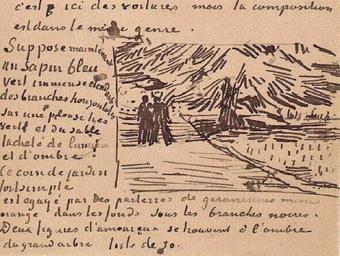 c'est q ici des voitures mais la composition
est dans le même genre.
Suppose maintenant
un sapin bleu
vert immense étendant
des branches horizontales
sur une pelouse très
verte et du sable
tacheté de lumière
et d'ombre.
Ce coin de jardin
fort simple
est égayé par des parterres de geraniums mine
orange dans les fonds sous les branches noires.
Deux figures d'amoureux se trouvent à l'ombre
du grand arbre toile de 30.